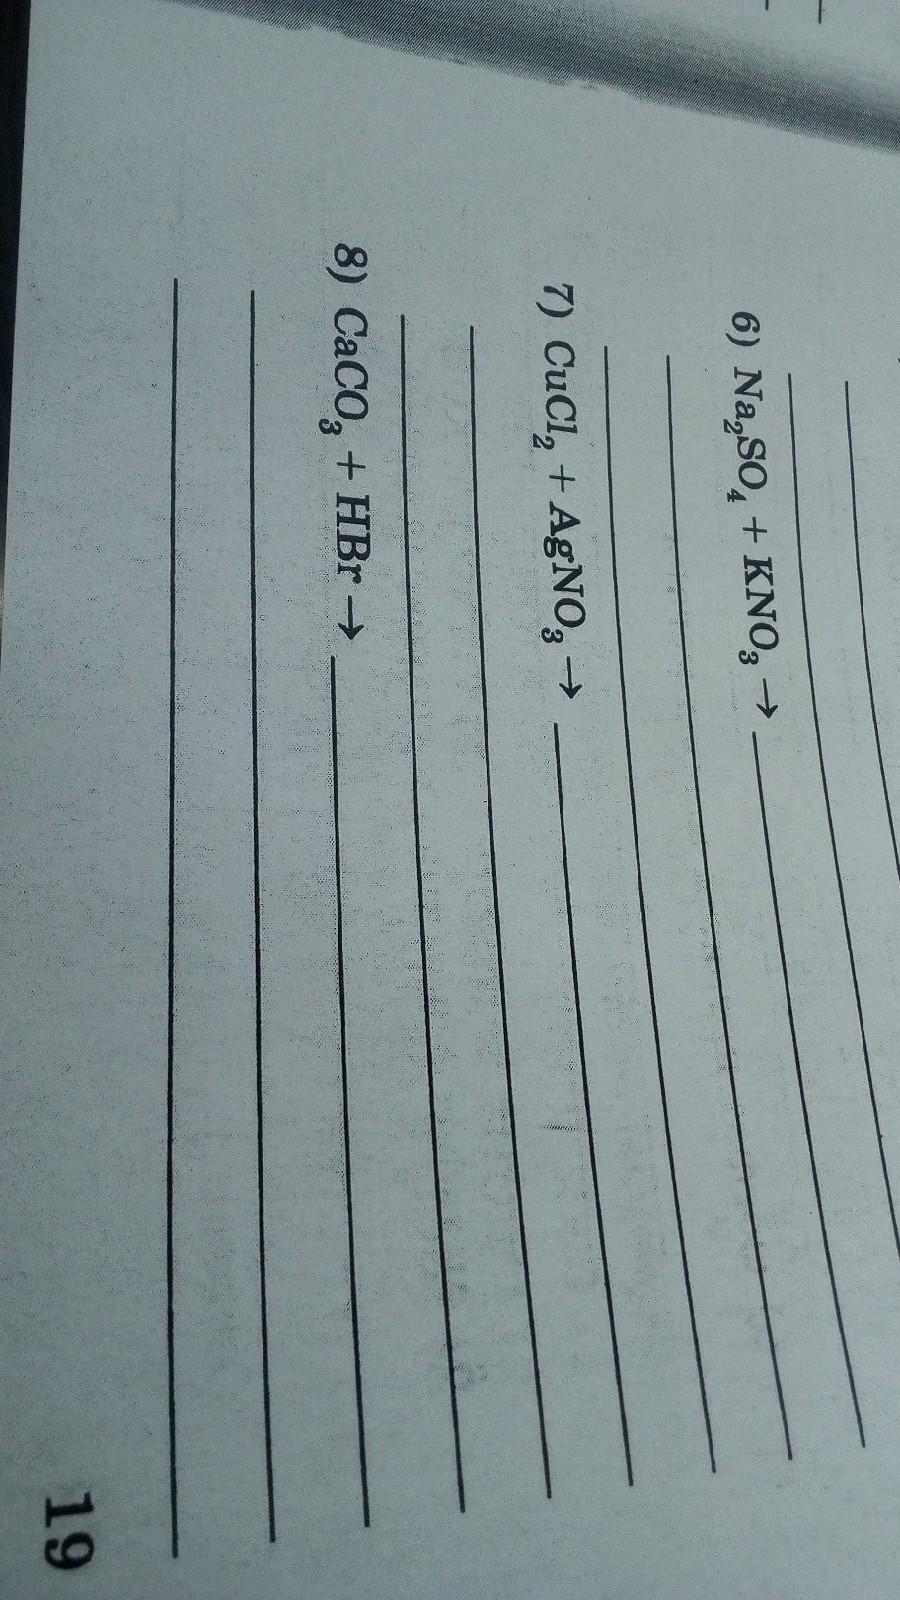 6) Na₂SO₄ + KNO₃ →
7) CuCl₂ + AgNO₃ →
8) CaCO₃ + HBr →
19